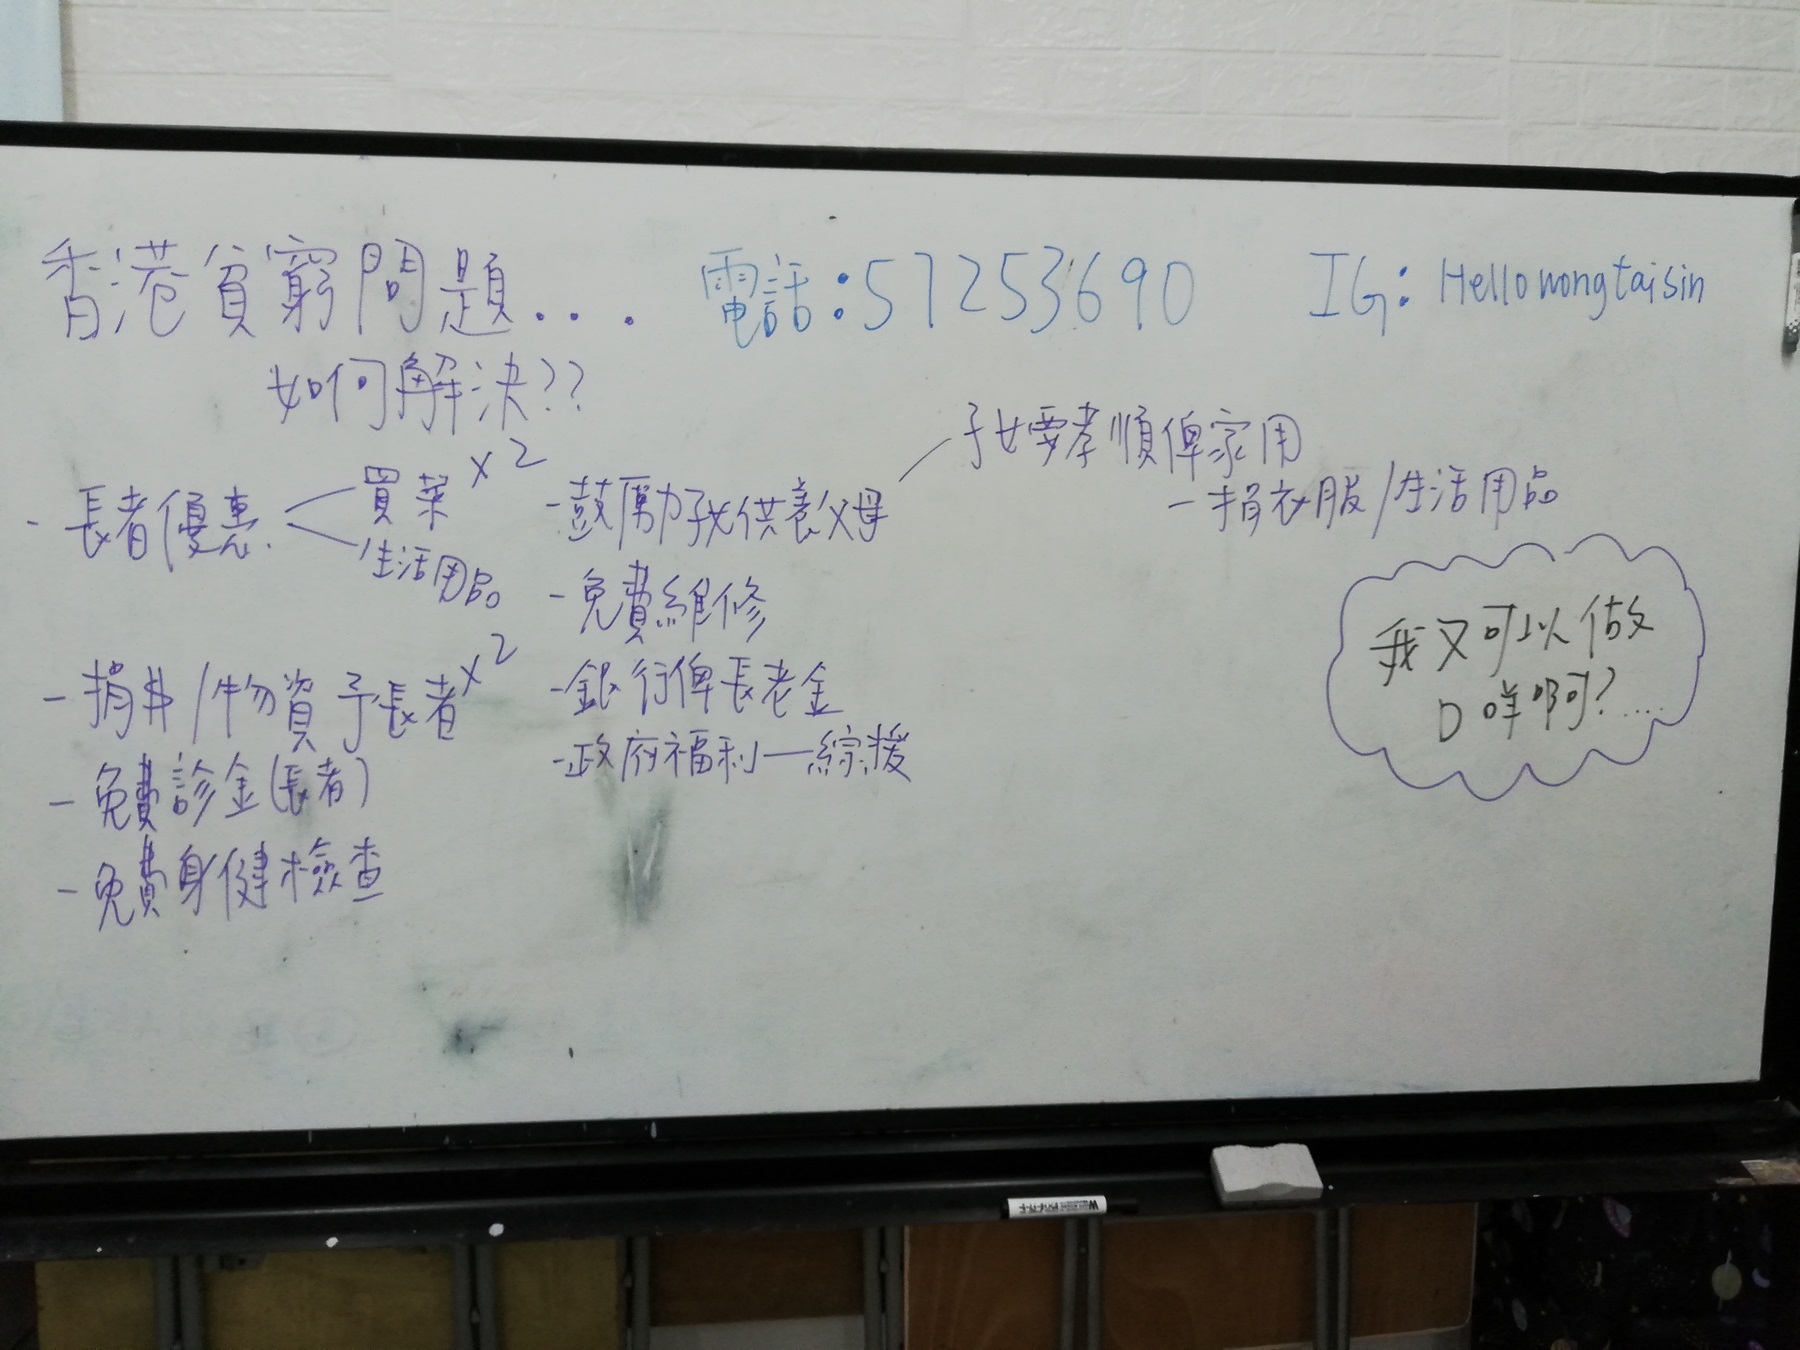 香港貧窮問題...
如何解決??
電話:57253690
IG: Hellowongtaisin
- 長者優惠
買菜 x2
生活用品
- 捐$/物資予長者 x2
- 免費診金(長者)
- 免費身健檢查
- 鼓厲子女供養父母
子女要孝順俾家用
- 免費維修
- 銀行俾長老金
- 政府福利—綜援
- 捐衣服/生活用品
我又可以做
D咩啊?....